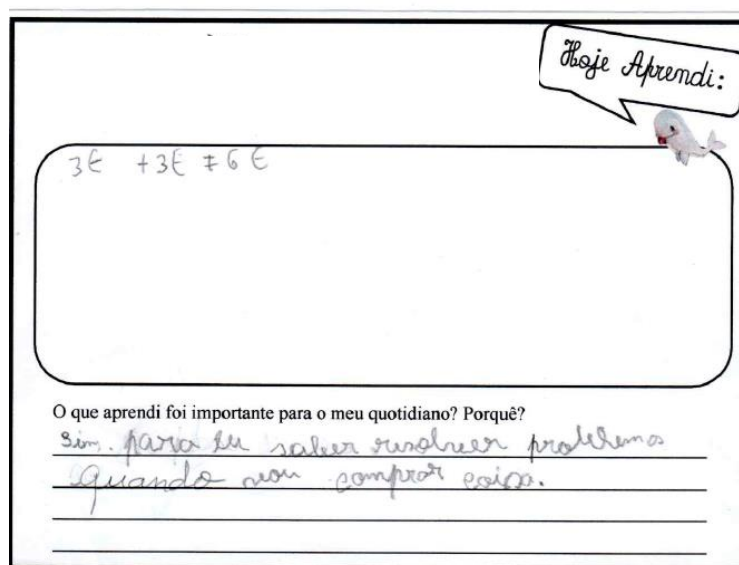 Hoje Aprendi:
3€ +3€ = 6 €
O que aprendi foi importante para o meu quotidiano? Porquê?
Sim. para eu saber resolver problemas
Quando vou comprar coisa.